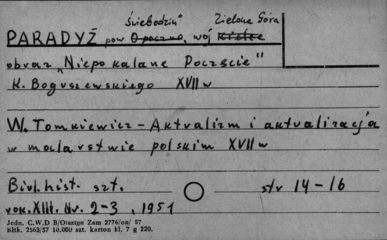 świebodzin" Zielona Góra
PARADYŻ pow Opoczno, wój Kielce
obraz „Niepokalane Poczęcie"
K. Boguszewskiego XVII w
W. Tomkiewicz - Aktualizm i aktualizacja
w malarstwie polskim XVII w
Biul. hist. szt. str 14-16
rok. XIII. Nr. 2-3, 1951
Jedn. C.W.D B/Olsztyn Zam 2776/on/ 57
Bltk. 2563/57 10.000 szt. karton kl. 7 g 220.